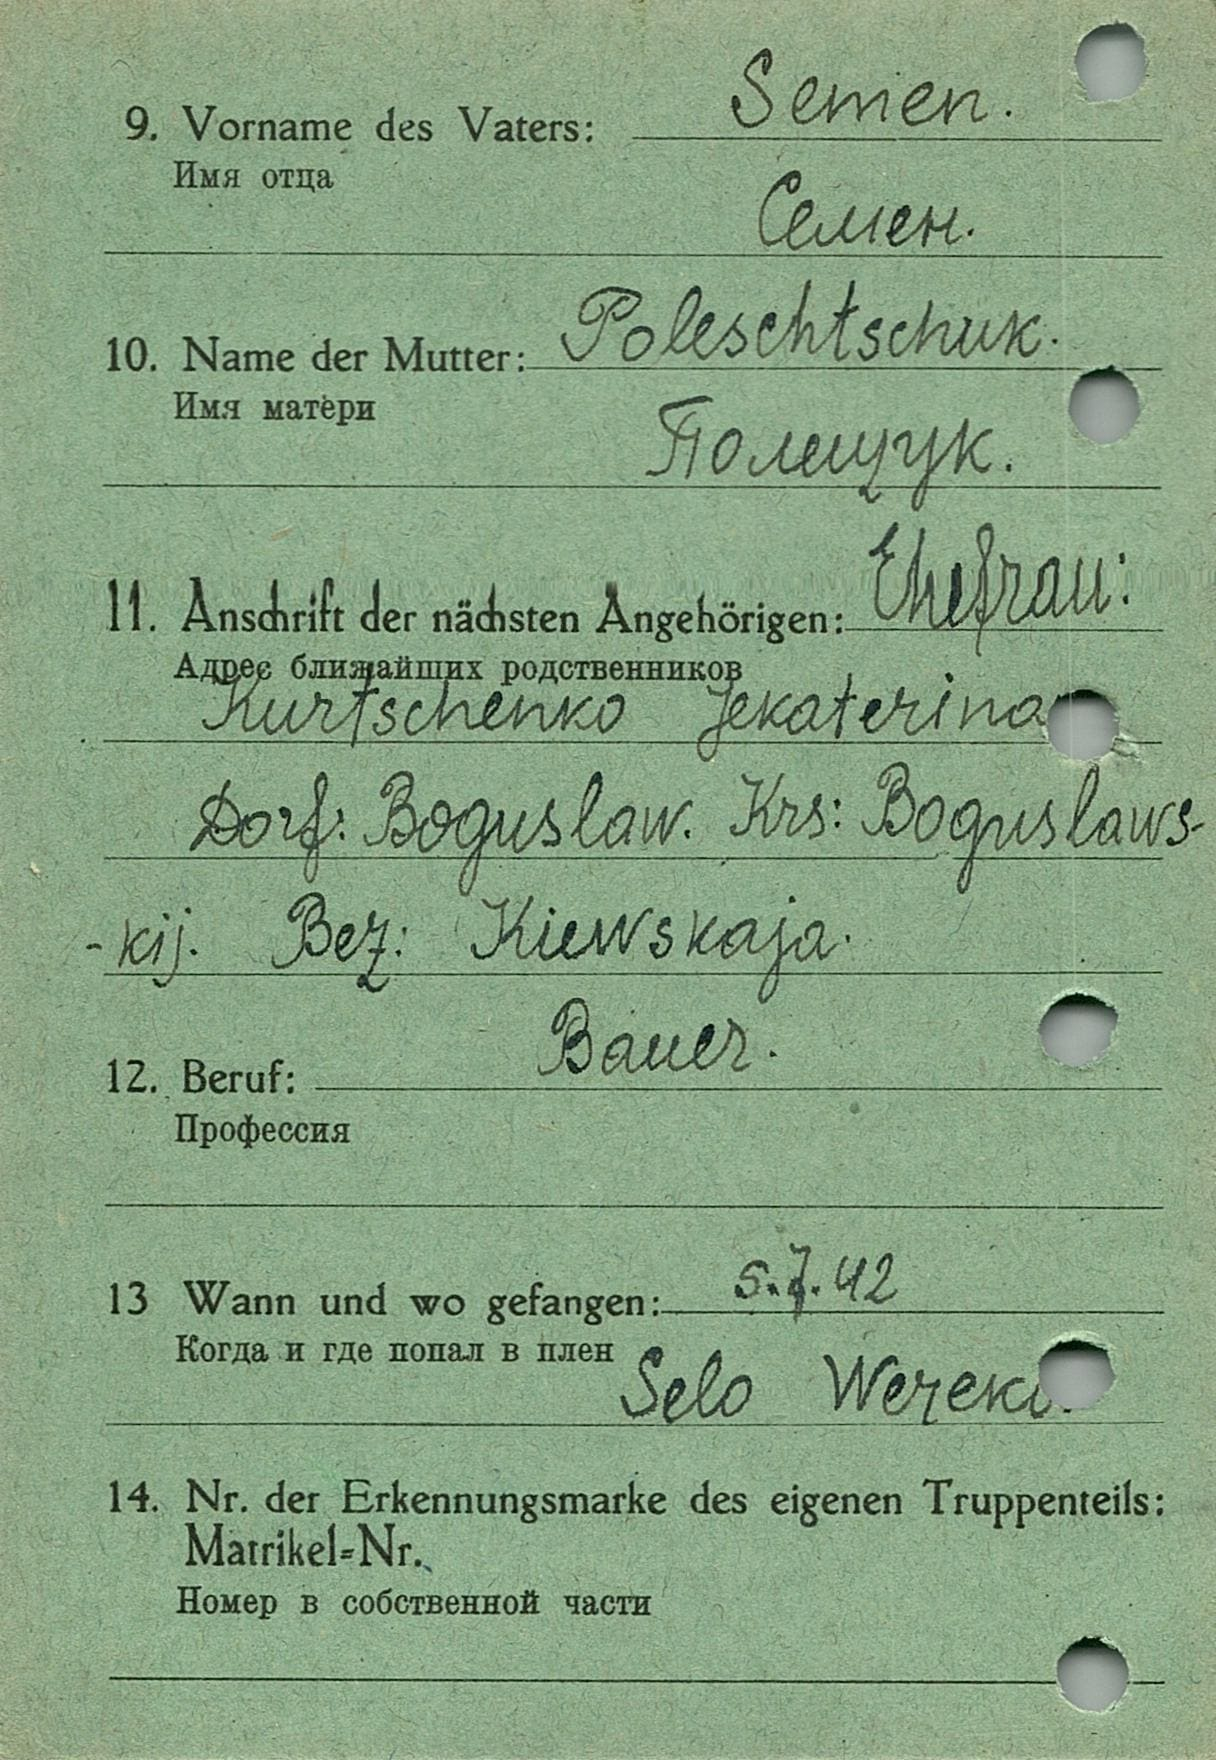 9. Vorname des Vaters: Semen.
Имя отца
Семен.
10. Name der Mutter: Poleschtschuk.
Имя матери
Полещук.
11. Anschrift der nächsten Angehörigen: Ehefrau:
Адрес ближайших родственников
Kurtschenko Jekaterina
Dorf: Boguslaw. Krs: Boguslaws-
-kij. Bez: Kiewskaja.
12. Beruf: Bauer.
Профессия
13 Wann und wo gefangen: 5.7.42
Когда и где попал в плен
Selo
14. Nr. der Erkennungsmarke des eigenen Truppenteils:
Matrikel=Nr.
Номер в собственной части